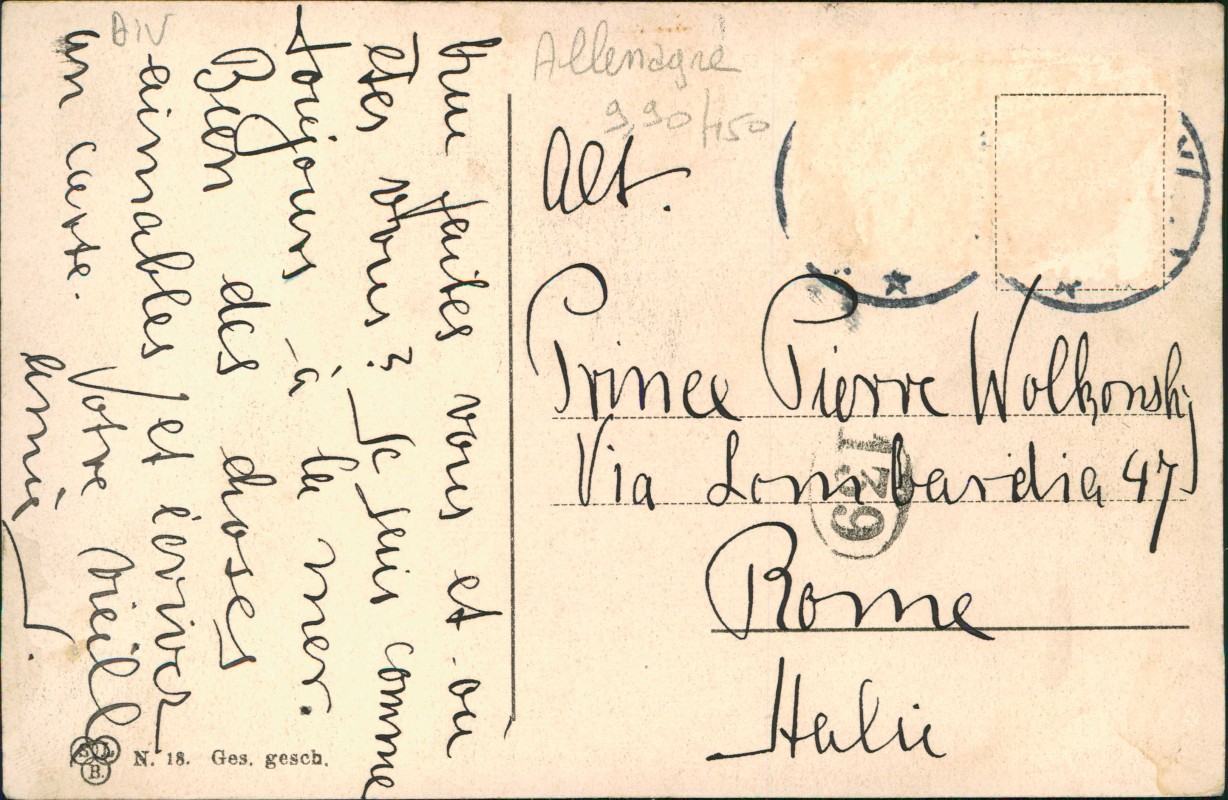 Allemagne
9,90/150
Alt.
Prince Pierre Wolkonsky
Via Lombardia 47
Rome
Italie
139
DIV
faites vous et ou
êtes vous? Je suis comme
toujours à la mer.
Bien des choses
aimables et écrivez
un carte. Votre vieill
amie
S L
B.
N. 18. Ges. gesch.